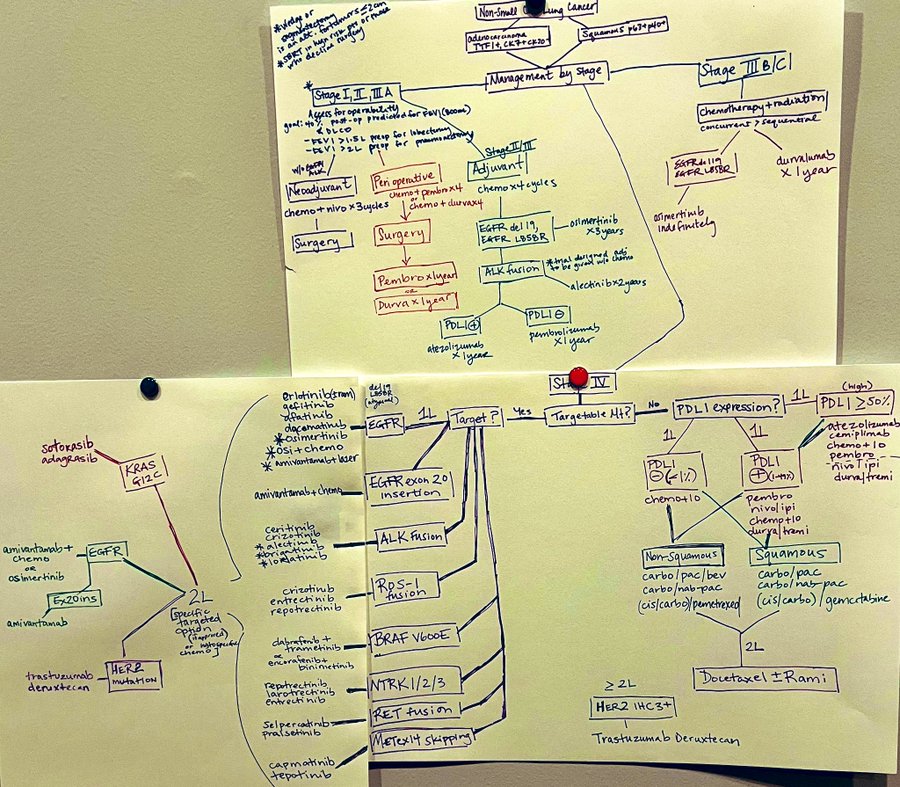 *wedge or
segmentectomy
is an alt. for tumors ≤2cm
*SBRT in high risk pts or those
who decline surgery
Non-Small Lung Cancer
adenocarcinoma
TTF1+, CK7+CK20-
Squamous p63+p40+
Management by Stage
*
Stage I, II, IIIA
Assess for operability
goal: 40% post-op predicted for FEV1 (800mL)
& DLCO
-FEV1 >1.5L preop for lobectomy
-FEV1 >2L preop for pneumonectomy
w/o EGFR/
ALK
Neoadjuvant
chemo+nivo×3cycles
Surgery
Perioperative
chemo+pembro×4
or
chemo+durva×4
Surgery
Pembro×1year
or
Durva×1year
Stage II/III
Adjuvant
chemo×4cycles
EGFR del19,
EGFR L858R
osimertinib
×3years
ALK fusion
*trial designed adj
to be given w/o chemo
alectinib×2years
PDL1 +
atezolizumab
×1year
PDL1 -
pembrolizumab
×1year
Stage III B/C
chemotherapy+radiation
concurrent > sequential
EGFR del19
EGFR L858R
osimertinib
indefinitely
durvalumab
×1year
Stage IV
Targetable Mt?
Yes
Target?
1L
del19
L858R
(atypical)
EGFR
erlotinib(±ram)
gefitinib
afatinib
dacomitinib
*osimertinib
*osi+chemo
*amivantamab+lazer
EGFR exon 20
insertion
amivantamab+chemo
ALK fusion
ceritinib
crizotinib
*alectinib
*brigatinib
*lorlatinib
ROS-1
fusion
crizotinib
entrectinib
repotrectinib
BRAF V600E
dabrafenib+
trametinib
or
encorafenib+
binimetinib
NTRK 1/2/3
repotrectinib
larotrectinib
entrectinib
RET fusion
selpercatinib
pralsetinib
METex14 skipping
capmatinib
tepotinib
2L
[specific
targeted
option
(if approved)
or histospecific
chemo]
sotorasib
adagrasib
KRAS
G12C
amivantamab+
chemo
or
osimertinib
EGFR
Ex20ins
amivantamab
trastuzumab
deruxtecan
HER2
mutation
No
PDL1 expression?
1L
(high)
PDL1 ≥50%
atezolizumab
cemiplimab
chemo+IO
pembro
nivo/ipi
durva/tremi
1L
PDL1
- (<1%)
chemo+IO
1L
PDL1
+ (1-49%)
pembro
nivo/ipi
chemo+IO
durva/tremi
Non-Squamous
carbo/pac/bev
carbo/nab-pac
(cis/carbo)/pemetrexed
Squamous
carbo/pac
carbo/nab-pac
(cis/carbo)/gemcitabine
2L
Docetaxel ± Rami
≥2L
HER2 IHC3+
Trastuzumab Deruxtecan